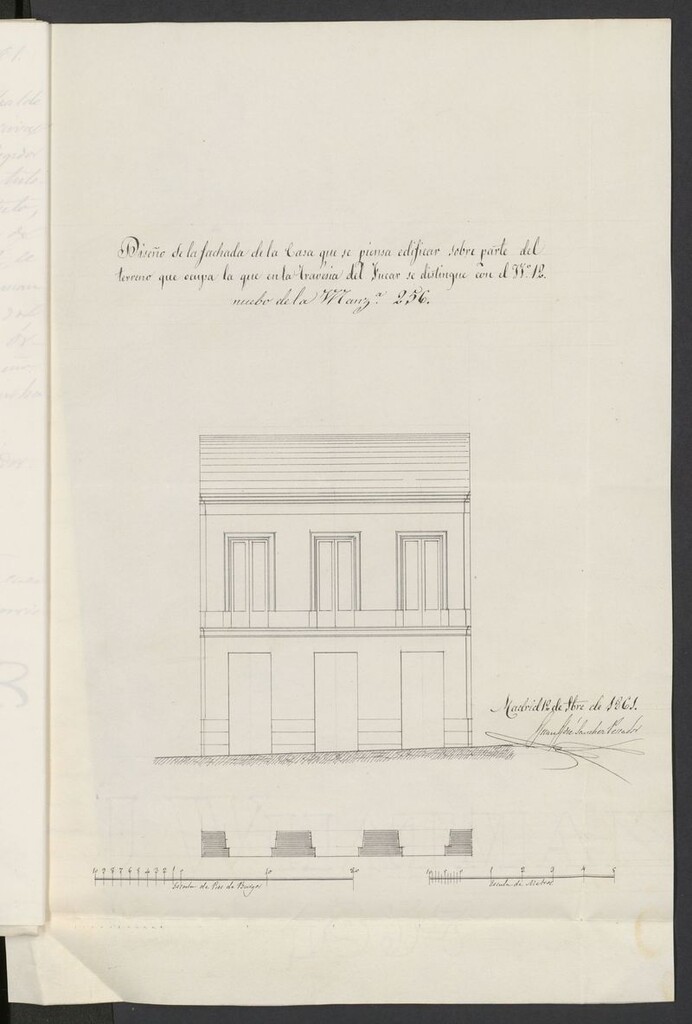 Diseño de la fachada de la Casa que se piensa edificar sobre parte del
terreno que ocupa la que en la travesia del Fucar se distingue con el Nº 12.
nuebo de la Manzª 256.
Madrid 12 de 9bre de 1861.
Juan José Sanchez Pescador
10 9 8 7 6 5 4 3 2 1 0 10 20
Escala de Pies de Burgos
1 2 3 4 5
Escala de Metros